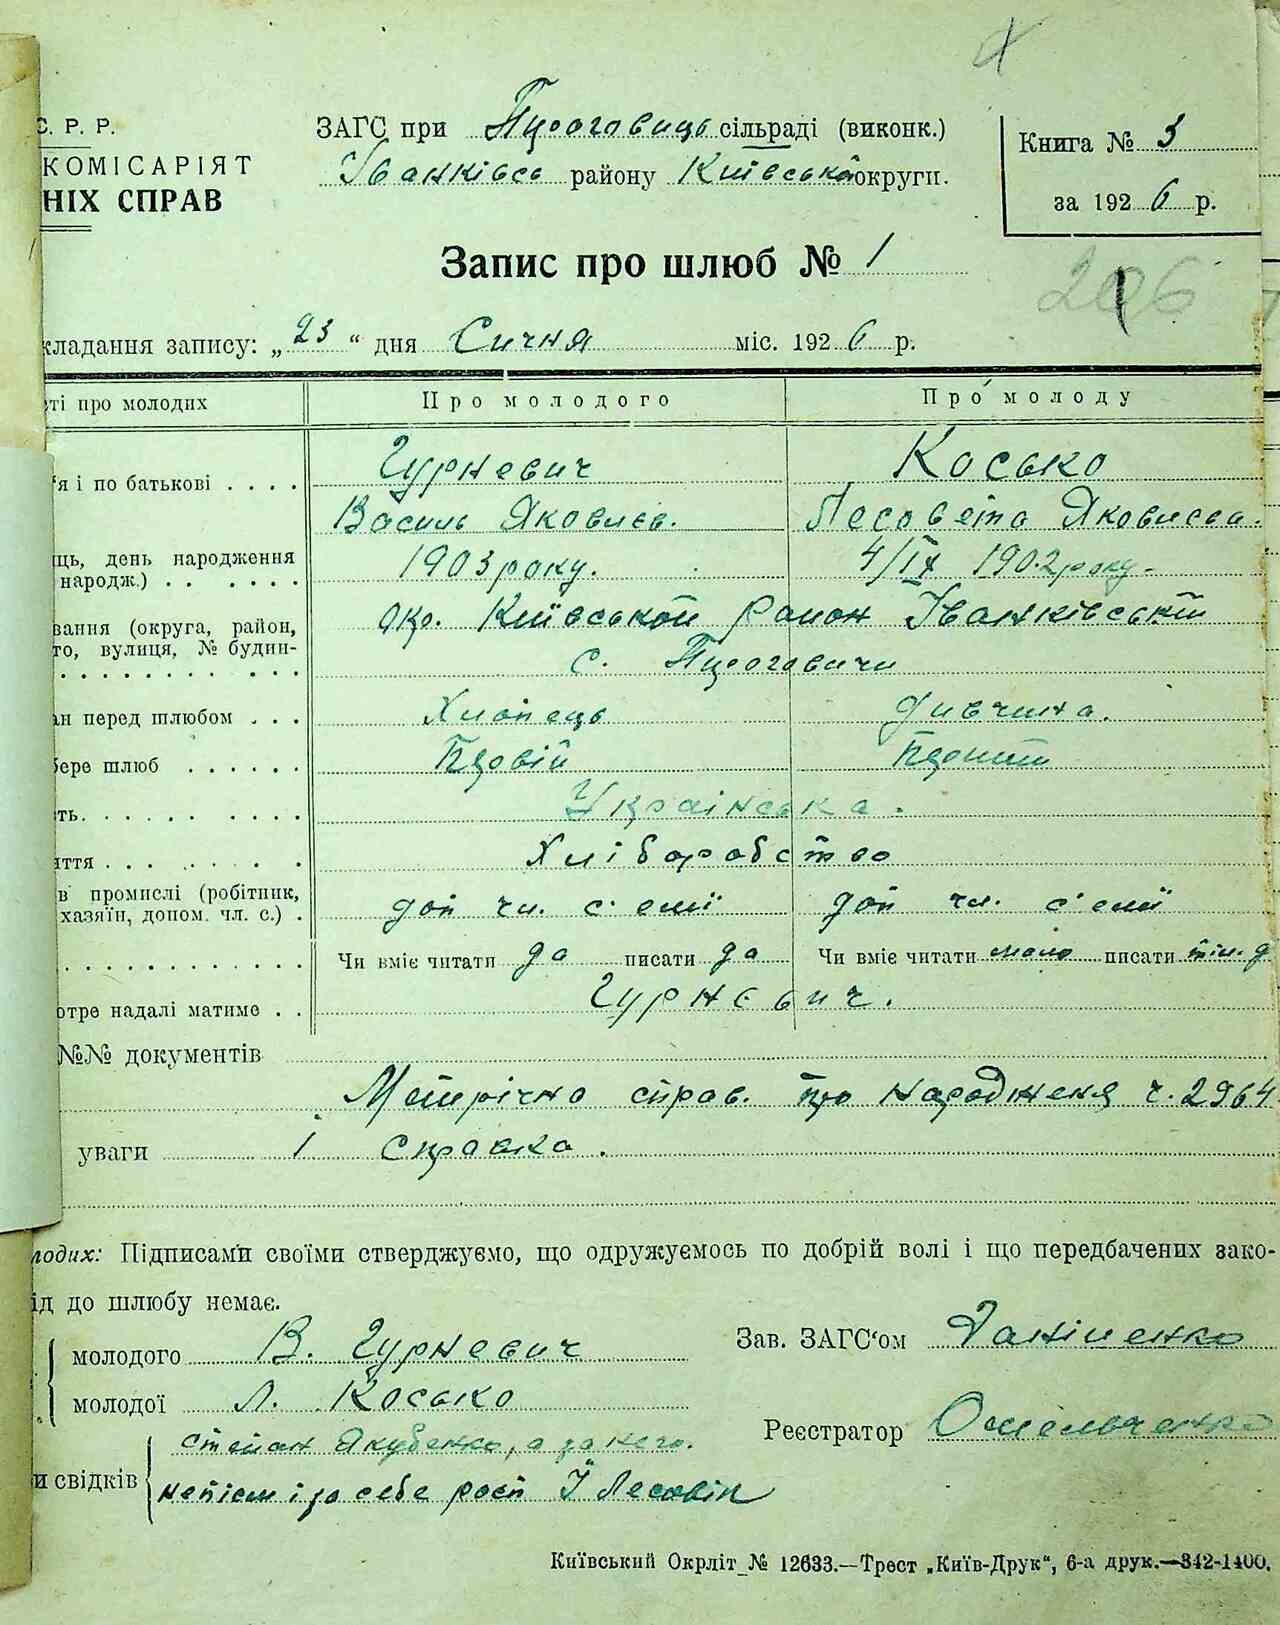 С. Р. Р.
КОМІСАРІЯТ
НІХ СПРАВ
ЗАГС при Пироговиць сільраді (виконк.)
Іванківсь району Київської округи.
Книга № 3
за 1926 р.
Запис про шлюб № 1
206
кладання запису: „23“ дня Сичня міс. 1926 р.
ті про молодих
Про молодого
Про молоду
'я і по батькові . . . .
Гурневич
Косько
Василь Яковлев.
Лесовета Яковлева.
ць, день народження
народж.) . . . . . .
1903 року.
4/IX 1902 року.
вання (округа, район,
то, вулиця, № будин-
окр. Київськой район Іванківській
с. Пироговичи
ан перед шлюбом . . .
Хлопець
дивчина.
бере шлюб . . . . . .
Первій
Первий
ть. . . . . . . . . . .
Українська.
яття . . . . . . .
Хліборобство
в промислі (робітник,
хазяїн, допом. чл. с.) .
доп чл. с'емї
доп чл. с'емї
Чи вміє читати да писати да
Чи вміє читати мало писати
отре надалі матиме . .
Гурневич.
№№ документів
Метрічна справ. про народженя ч. 2964
уваги і справка.
лодих: Підписами своїми стверджуємо, що одружуємось по добрій волі і що передбачених зако-
ід до шлюбу немає.
молодого В. Гурневич
Зав. ЗАГС‘ом Даніленко
молодої Л. Косько
Реєстратор Омельченко
и свідків
Степан Якубенко, а за него.
непісм і за себе росп І Лесовік
Київський Окрліт № 12633.—Трест „Київ-Друк“, 6-а друк.—342-1400.